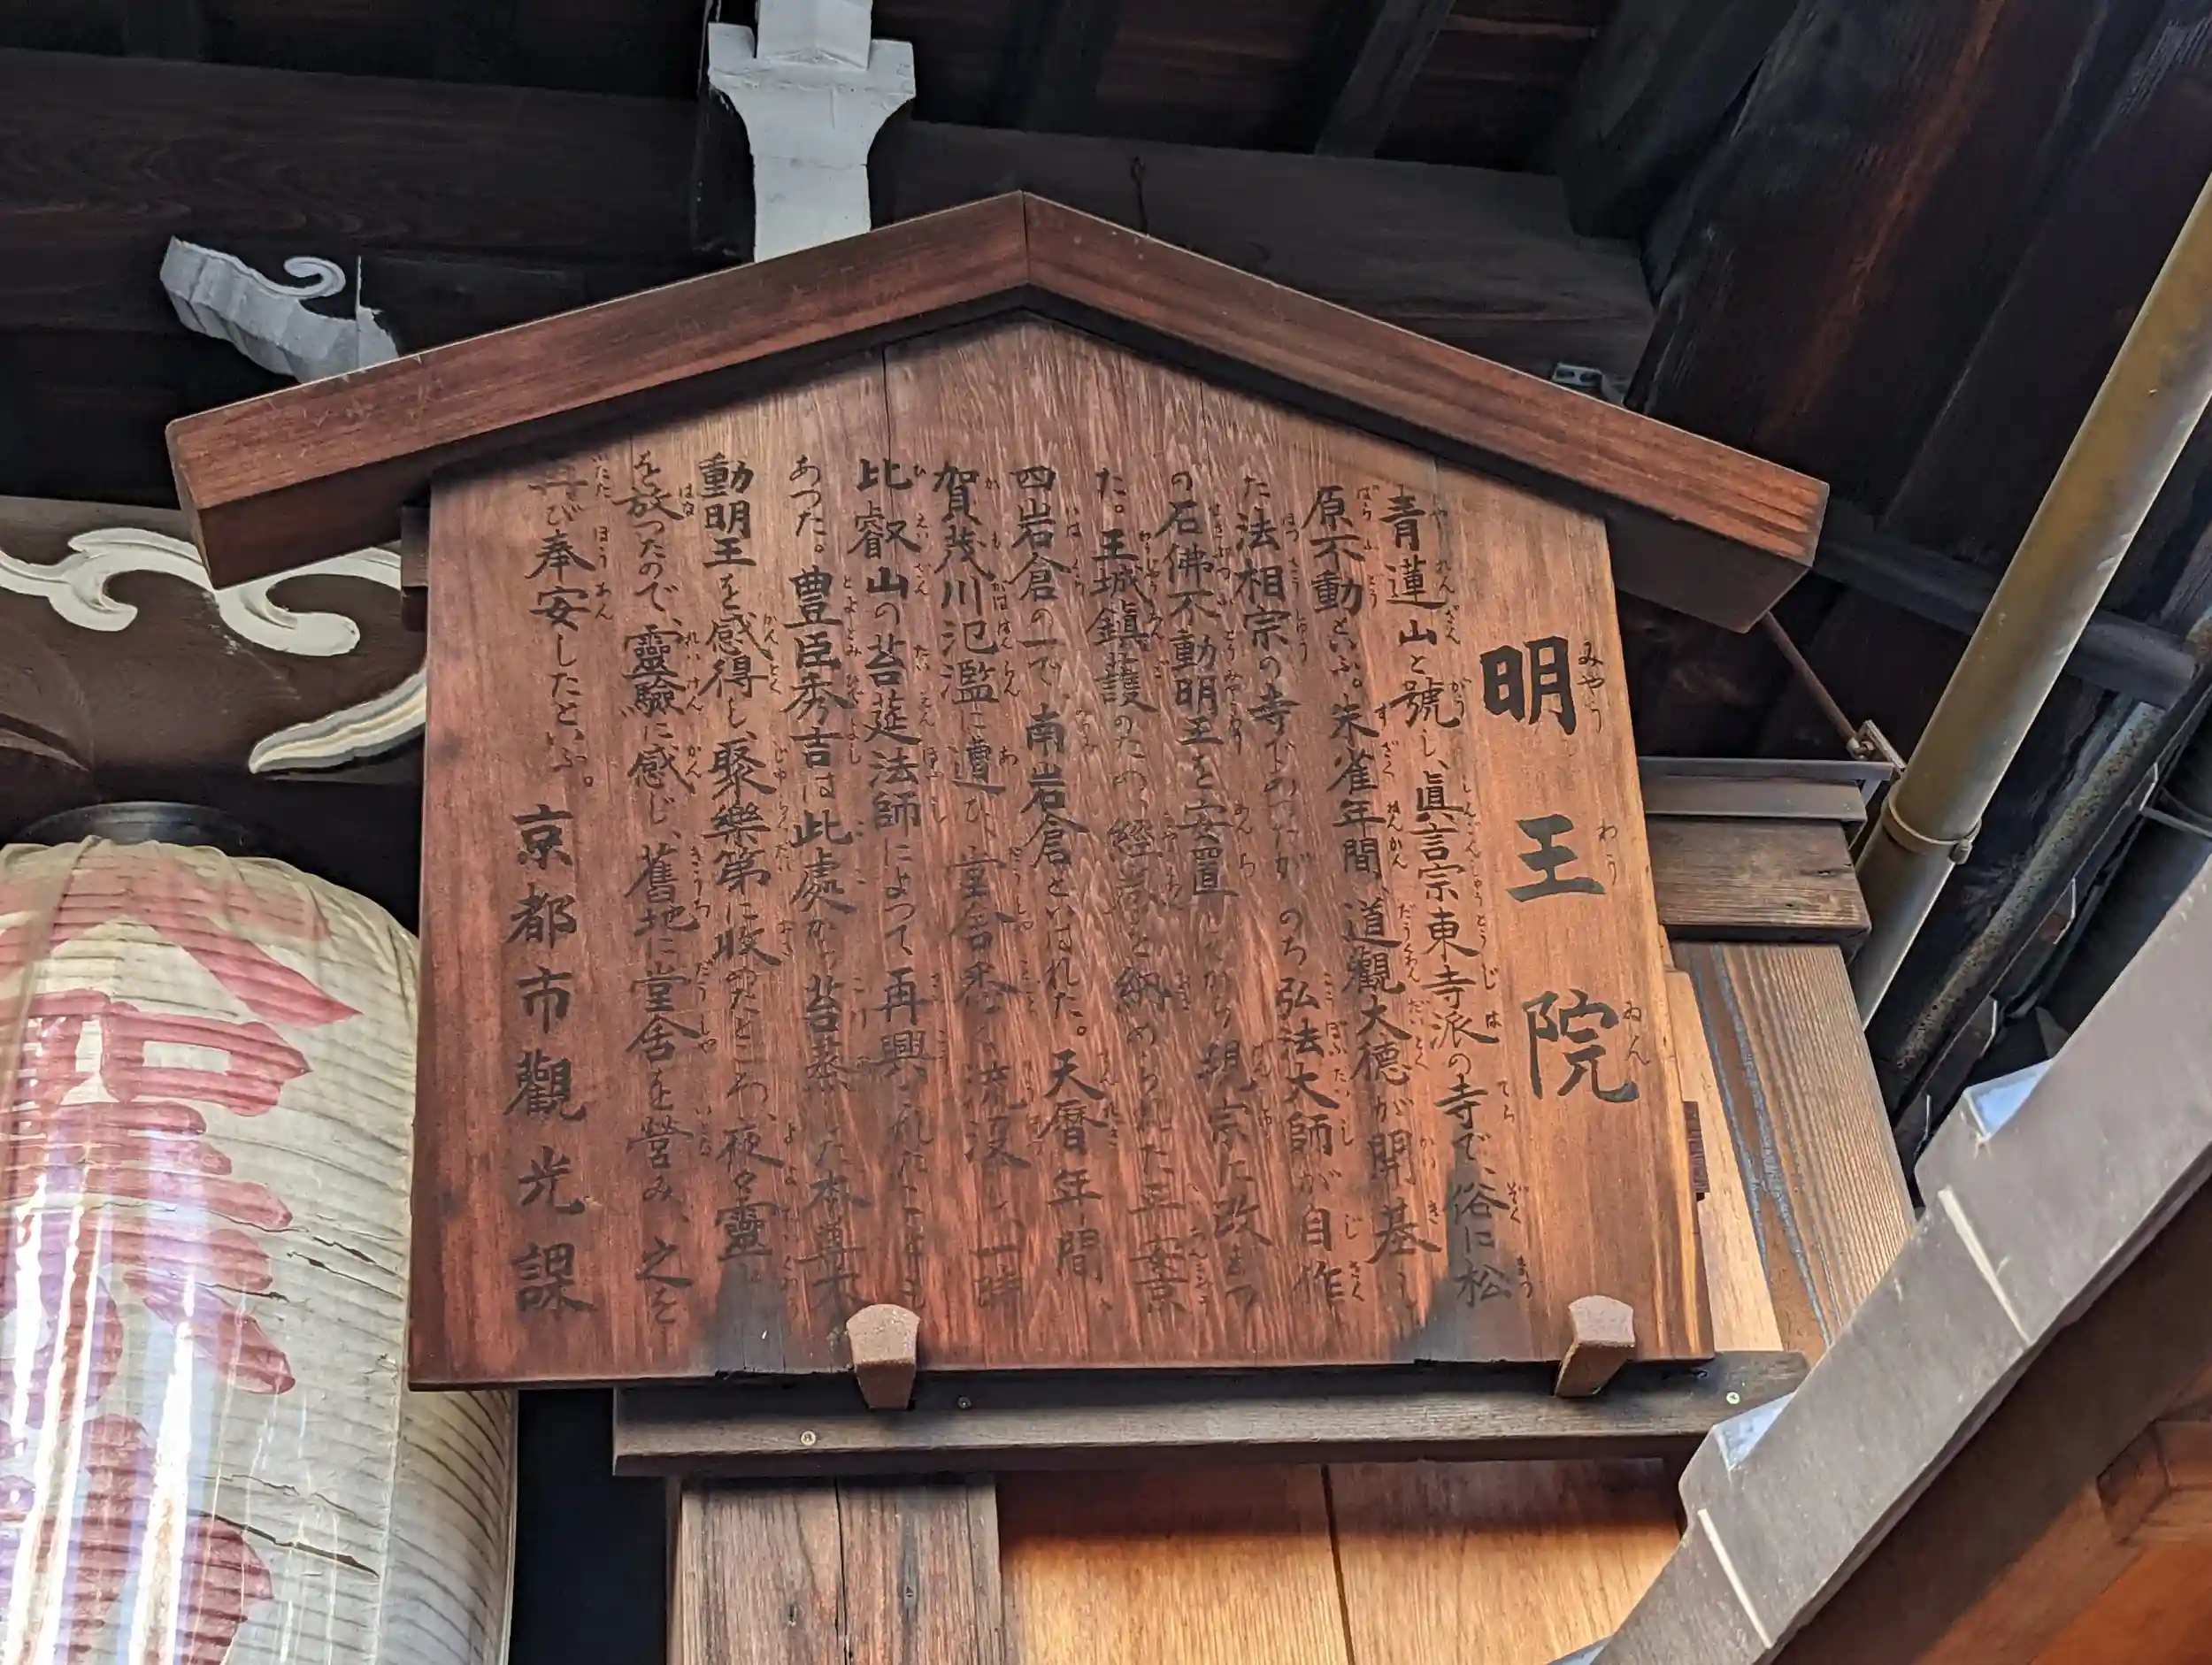 明王院
青蓮山と號し、眞言宗東寺派の寺で、俗に松
原不動といふ。朱雀年間、道觀大德が開基し
た法相宗の寺であつたが、のち弘法大師が自作
の石佛不動明王を安置してから現宗に改まつ
た。王城鎭護のため、經卷を納められた平安京
四岩倉の一で、南岩倉といはれた。天曆年間、
賀茂川氾濫に遭ひ、堂舍悉く流沒し、一時
比叡山の苔莚法師によつて再興されたことも
あつた。豊臣秀吉は此處から苔蒸した本尊不
動明王を感得し、聚樂第に收めたところ、夜々靈光
を放つたので、靈驗に感じ、舊地に堂舍を營み、之を
再び奉安したといふ。
京都市觀光課